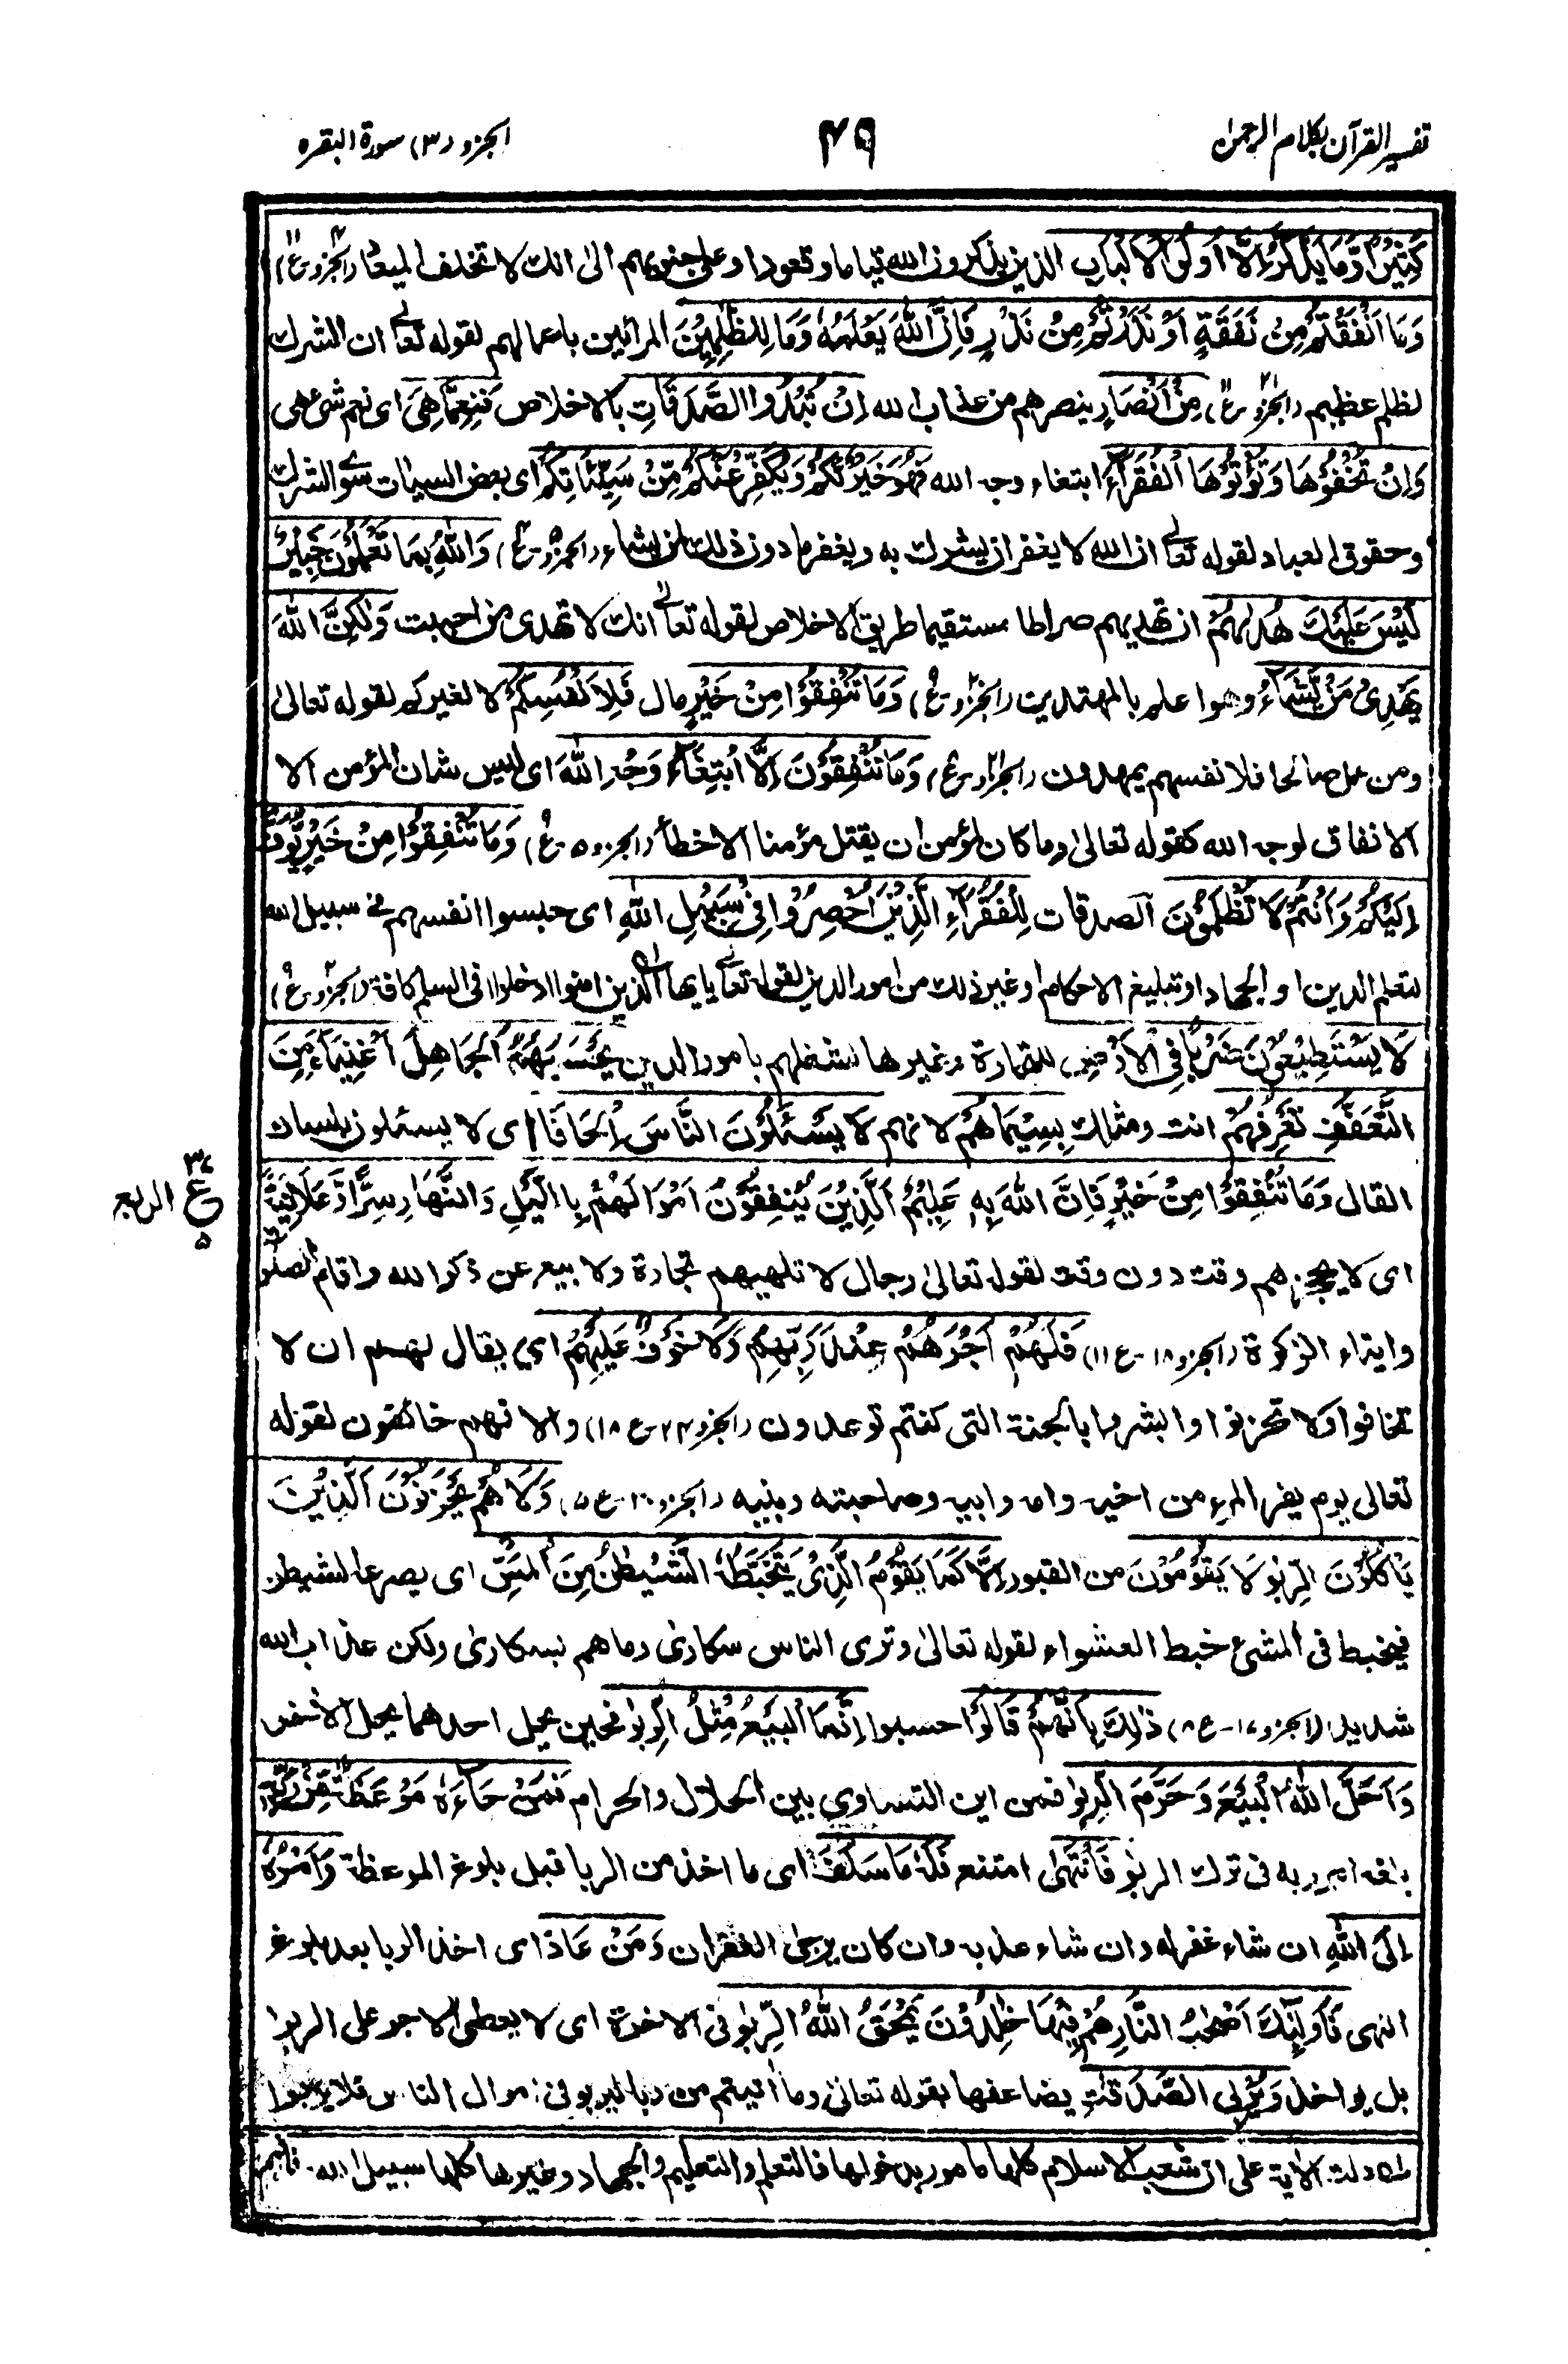 تفسير القرآن بكلام الرحمن
٤٩
الجزو (٣) سورة البقره
كَثِيْرًا وَّمَا يَذَّكَّرُ اِلَّا اُولُوا الْاَلْبَابِ الذين يذكرون الله قياما وقعودا وعلى جنوبهم الى انك لا تخلف الميعاد (الجزو ٤ ع ١١)
وَمَا اَنْفَقْتُمْ مِنْ نَفَقَةٍ اَوْ نَذَرْتُمْ مِنْ نَذْرٍ فَاِنَّ اللهَ يَعْلَمُهٗ وَمَا لِلظّٰلِمِيْنَ المرائين باعمالهم لقوله تعالى ان الشرك
لظلم عظيم (الجزو ٢١ ع ١١) مِنْ اَنْصَارٍ ينصرهم من عذاب الله اِنْ تُبْدُوا الصَّدَقَاتِ بالاخلاص فَنِعِمَّا هِيَ اى نعم شئ هى
وَاِنْ تُخْفُوْهَا وَتُؤْتُوْهَا الْفُقَرَآءَ ابتغاء وجه الله فَهُوَ خَيْرٌ لَّكُمْ وَيُكَفِّرُ عَنْكُمْ مِّنْ سَيِّئَاتِكُمْ اى بعض السيئات سوى الشرك
وحقوق العباد لقوله تعالى ان الله لا يغفر ان يشرك به ويغفر ما دون ذلك لمن يشاء (الجزو ٥ ع) وَاللهُ بِمَا تَعْمَلُوْنَ خَبِيْرٌ
لَيْسَ عَلَيْكَ هُدٰىهُمْ ان تهديهم صراطا مستقيما طريق الاخلاص لقوله تعالى انك لا تهدى من احببت وَلٰكِنَّ اللهَ
يَهْدِىْ مَنْ يَّشَآءُ وهو اعلم بالمهتدين (الجزو ع) وَمَا تُنْفِقُوْا مِنْ خَيْرٍ مال فَلِاَنْفُسِكُمْ لا لغيركم لقوله تعالى
ومن عمل صالحا فلانفسهم يمهدون (الجزو ع) وَمَا تُنْفِقُوْنَ اِلَّا ابْتِغَآءَ وَجْهِ اللهِ اى ليس شان المؤمن الا
الانفاق لوجه الله كقوله تعالى وما كان لمؤمن ان يقتل مؤمنا الا خطأ (الجزو ٥ ع) وَمَا تُنْفِقُوْا مِنْ خَيْرٍ يُّوَفَّ
اِلَيْكُمْ وَاَنْتُمْ لَا تُظْلَمُوْنَ الصدقات لِلْفُقَرَآءِ الَّذِيْنَ اُحْصِرُوْا فِىْ سَبِيْلِ اللهِ اى حبسوا انفسهم فى سبيل الله
لتعلم الدين او الجهاد او تبليغ الاحكام وغير ذلك من امور الدين لقوله تعالى يايها الذين امنوا ادخلوا فى السلم كافة (الجزو ٢ ع)
لَا يَسْتَطِيْعُوْنَ ضَرْبًا فِى الْاَرْضِ للتجارة وغيرها لشغلهم بامور الدين يَحْسَبُهُمُ الْجَاهِلُ اَغْنِيَآءَ مِنَ
التَّعَفُّفِ تَعْرِفُهُمْ انت ومثلك بِسِيْمَاهُمْ لانهم لَا يَسْئَلُوْنَ النَّاسَ اِلْحَافًا اى لا يسئلون بلسان
القال وَمَا تُنْفِقُوْا مِنْ خَيْرٍ فَاِنَّ اللهَ بِهٖ عَلِيْمٌ اَلَّذِيْنَ يُنْفِقُوْنَ اَمْوَالَهُمْ بِالَّيْلِ وَالنَّهَارِ سِرًّا وَّعَلَانِيَةً
٣٧ ع ٥ الربع
اى لا يحجزهم وقت دون وقت لقوله تعالى رجال لا تلهيهم تجارة ولا بيع عن ذكر الله واقام الصلوة
وايتاء الزكوة (الجزو ١٨ - ع ١١) فَلَهُمْ اَجْرُهُمْ عِنْدَ رَبِّهِمْ وَلَا خَوْفٌ عَلَيْهِمْ اى يقال لهم ان لا
تخافوا ولا تحزنوا وابشروا بالجنة التى كنتم توعدون (الجزو ٢٤ - ع ١٨) والا فهم خائفون لقوله
تعالى يوم يفر المرء من اخيه وامه وابيه وصاحبته وبنيه (الجزو ٣٠ - ع ٥) وَلَا هُمْ يَحْزَنُوْنَ اَلَّذِيْنَ
يَاْكُلُوْنَ الرِّبٰوا لَا يَقُوْمُوْنَ من القبور اِلَّا كَمَا يَقُوْمُ الَّذِىْ يَتَخَبَّطُهُ الشَّيْطٰنُ مِنَ الْمَسِّ اى يصرعه الشيطن
فيخبط فى المشئ خبط العشواء لقوله تعالى وترى الناس سكارى وما هم بسكارى ولكن عذاب الله
شديد (الجزو ١٧ - ع ٨) ذٰلِكَ بِاَنَّهُمْ قَالُوْا حسبوا اِنَّمَا الْبَيْعُ مِثْلُ الرِّبٰوا فحين يحل احدهما يحل الآخر
وَاَحَلَّ اللهُ الْبَيْعَ وَحَرَّمَ الرِّبٰوا فمن اين التساوي بين الحلال والحرام فَمَنْ جَآءَهٗ مَوْعِظَةٌ مِّنْ رَّبِّهٖ
بلغه امر ربه فى ترك الربوا فَانْتَهٰى امتنع فَلَهٗ مَا سَلَفَ اى ما اخذ من الربا قبل بلوغ الموعظة وَاَمْرُهٗ
اِلَى اللهِ ان شاء غفر له وان شاء عذب وان كان يرجى الغفران وَمَنْ عَادَ اى اخذ الربا بعد بلوغ
النهى فَاُولٰٓئِكَ اَصْحٰبُ النَّارِ هُمْ فِيْهَا خٰلِدُوْنَ يَمْحَقُ اللهُ الرِّبٰوا فى الاخرة اى لا يعطى الاجر على الربوا
بل يواخذ وَيُرْبِى الصَّدَقٰتِ يضاعفها لقوله تعالى وما اتيتم من ربا ليربو فى اموال الناس فلا يربوا
دلت الاية على ان شعب الاسلام كلها مامور بدخولها فالتعلم والتعليم والجهاد وغيرها كلها سبيل الله فافهم